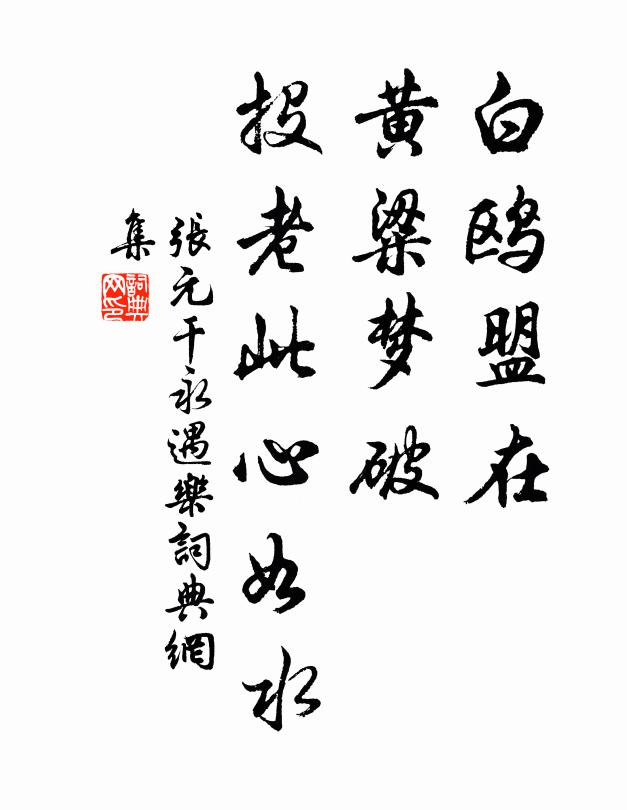 白鸥盟在
黄粱梦破
投老此心如水
張元干永遇樂詞典網
集
詞典網印